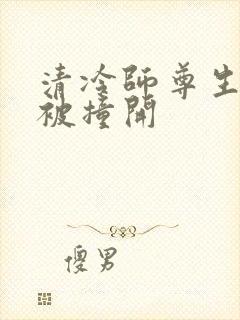 清冷師尊生
被撞開
傻男